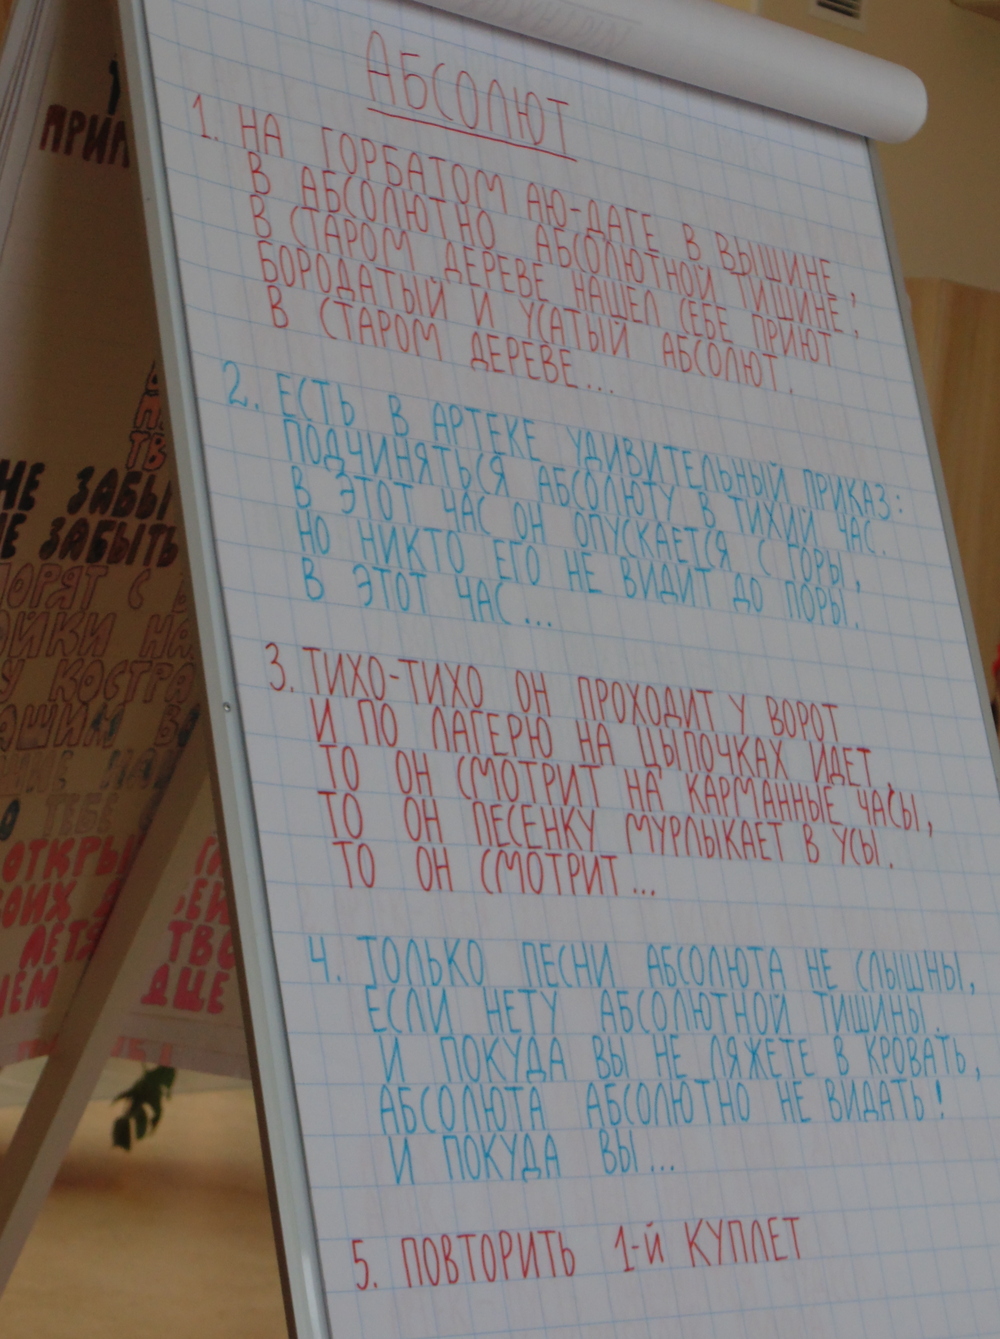 АБСОЛЮТ
1. НА ГОРБАТОМ АЮ-ДАГЕ В ВЫШИНЕ,
В АБСОЛЮТНО АБСОЛЮТНОЙ ТИШИНЕ,
В СТАРОМ ДЕРЕВЕ НАШЕЛ СЕБЕ ПРИЮТ
БОРОДАТЫЙ И УСАТЫЙ АБСОЛЮТ.
В СТАРОМ ДЕРЕВЕ...
2. ЕСТЬ В АРТЕКЕ УДИВИТЕЛЬНЫЙ ПРИКАЗ:
ПОДЧИНЯТЬСЯ АБСОЛЮТУ В ТИХИЙ ЧАС.
В ЭТОТ ЧАС ОН ОПУСКАЕТСЯ С ГОРЫ,
НО НИКТО ЕГО НЕ ВИДИТ ДО ПОРЫ.
В ЭТОТ ЧАС...
3. ТИХО-ТИХО ОН ПРОХОДИТ У ВОРОТ
И ПО ЛАГЕРЮ НА ЦЫПОЧКАХ ИДЕТ,
ТО ОН СМОТРИТ НА КАРМАННЫЕ ЧАСЫ,
ТО ОН ПЕСЕНКУ МУРЛЫКАЕТ В УСЫ.
ТО ОН СМОТРИТ...
4. ТОЛЬКО ПЕСНИ АБСОЛЮТА НЕ СЛЫШНЫ,
ЕСЛИ НЕТУ АБСОЛЮТНОЙ ТИШИНЫ.
И ПОКУДА ВЫ НЕ ЛЯЖЕТЕ В КРОВАТЬ,
АБСОЛЮТА АБСОЛЮТНО НЕ ВИДАТЬ!
И ПОКУДА ВЫ...
5. ПОВТОРИТЬ 1-й КУПЛЕТ
НЕ ЗАБЫ
Е ЗАБЫТЬ